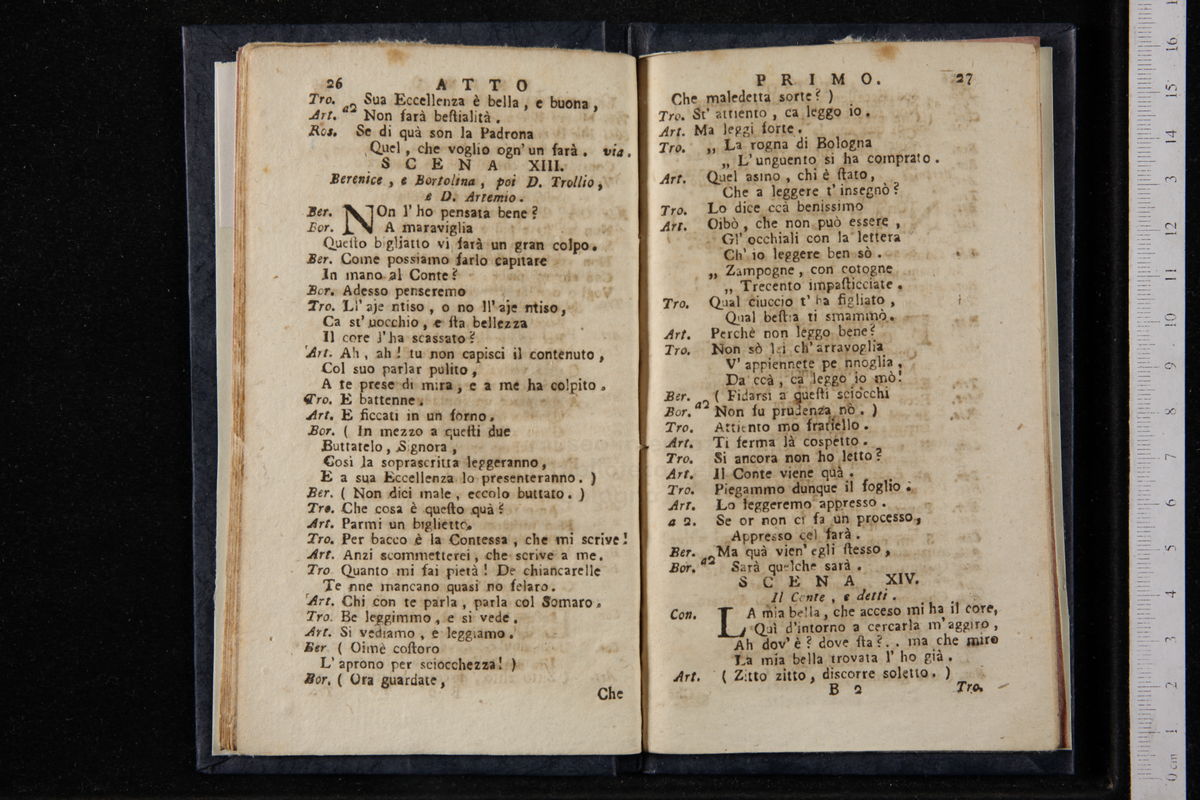 26 ATTO
Tro. a2 Sua Eccellenza è bella, e buona,
Art. Non farà beſtialità.
Ros. Se di quà son la Padrona
Quel, che voglio ogn' un farà. via.
SCENA XIII.
Berenice, e Bortolina, poi D. Trollio,
e D. Artemio.
Ber. NOn l' ho pensata bene?
Bor. A maraviglia
Queſto bigliatto vi farà un gran colpo.
Ber. Come possiamo farlo capitare
In mano al Conte?
Bor. Adesso penseremo
Tro. Ll' aje ntiso, o no ll' aje ntiso,
Ca st' uocchio, e ſta bellezza
Il core l' ha scassato?
Art. Ah, ah! tu non capisci il contenuto,
Col suo parlar pulito,
A te prese di mira, e a me ha colpito.
Tro. E battenne.
Art. E ficcati in un forno.
Bor. ( In mezzo a queſti due
Buttatelo, Signora,
Così la soprascritta leggeranno,
E a sua Eccellenza lo presenteranno. )
Ber. ( Non dici male, eccolo buttato. )
Tro. Che cosa è queſto quà?
Art. Parmi un biglietto.
Tro. Per bacco è la Contessa, che mi scrive!
Art. Anzi scommetterei, che scrive a me.
Tro Quanto mi fai pietà! De chiancarelle
Te nne mancano quasi no felaro.
Art. Chi con te parla, parla col Somaro.
Tro. Be leggimmo, e si vede.
Art. Si vediamo, e leggiamo.
Ber ( Oimè coſtoro
L' aprono per sciocchezza! )
Bor. ( Ora guardate,
Che
PRIMO. 27
Che maledetta sorte? )
Tro. St' attiento, ca leggo io.
Art. Ma leggi forte.
Tro. „ La rogna di Bologna
„ L' unguento si ha comprato.
Art. Quel asino, chi è ſtato,
Che a leggere t' insegnò?
Tro. Lo dice ccà benissimo
Art. Oibò, che non può essere,
Gl' occhiali con la lettera
Ch' io leggere ben sò.
„ Zampogne, con cotogne
„ Trecento impaſticciate.
Tro. Qual ciuccio t' ha figliato,
Qual beſtia ti smammò.
Art. Perchè non leggo bene?
Tro. Non sò lei ch' arravoglia
V' appiennete pe nnoglia,
Da ccà, ca leggo io mò!
Ber. a2 ( Fidarsi a queſti sciocchi
Bor. Non fu prudenza nò. )
Tro. Attiento mo fratiello.
Art. Ti ferma là cospetto.
Tro. Si ancora non ho letto?
Art. Il Conte viene quà.
Tro. Piegammo dunque il foglio.
Art. Lo leggeremo appresso.
a 2. Se or non ci fa un processo,
Appresso cel farà.
Ber. a2 Ma quà vien' egli ſtesso,
Bor. Sarà quelche sarà.
SCENA XIV.
Il Conte, e detti.
Con. LA mia bella, che acceso mi ha il core,
Quì d'intorno a cercarla m'aggiro,
Ah dov' è? dove ſta?.. ma che miro
La mia bella trovata l' ho già.
Art. ( Zitto zitto, discorre soletto. )
B 2 Tro.